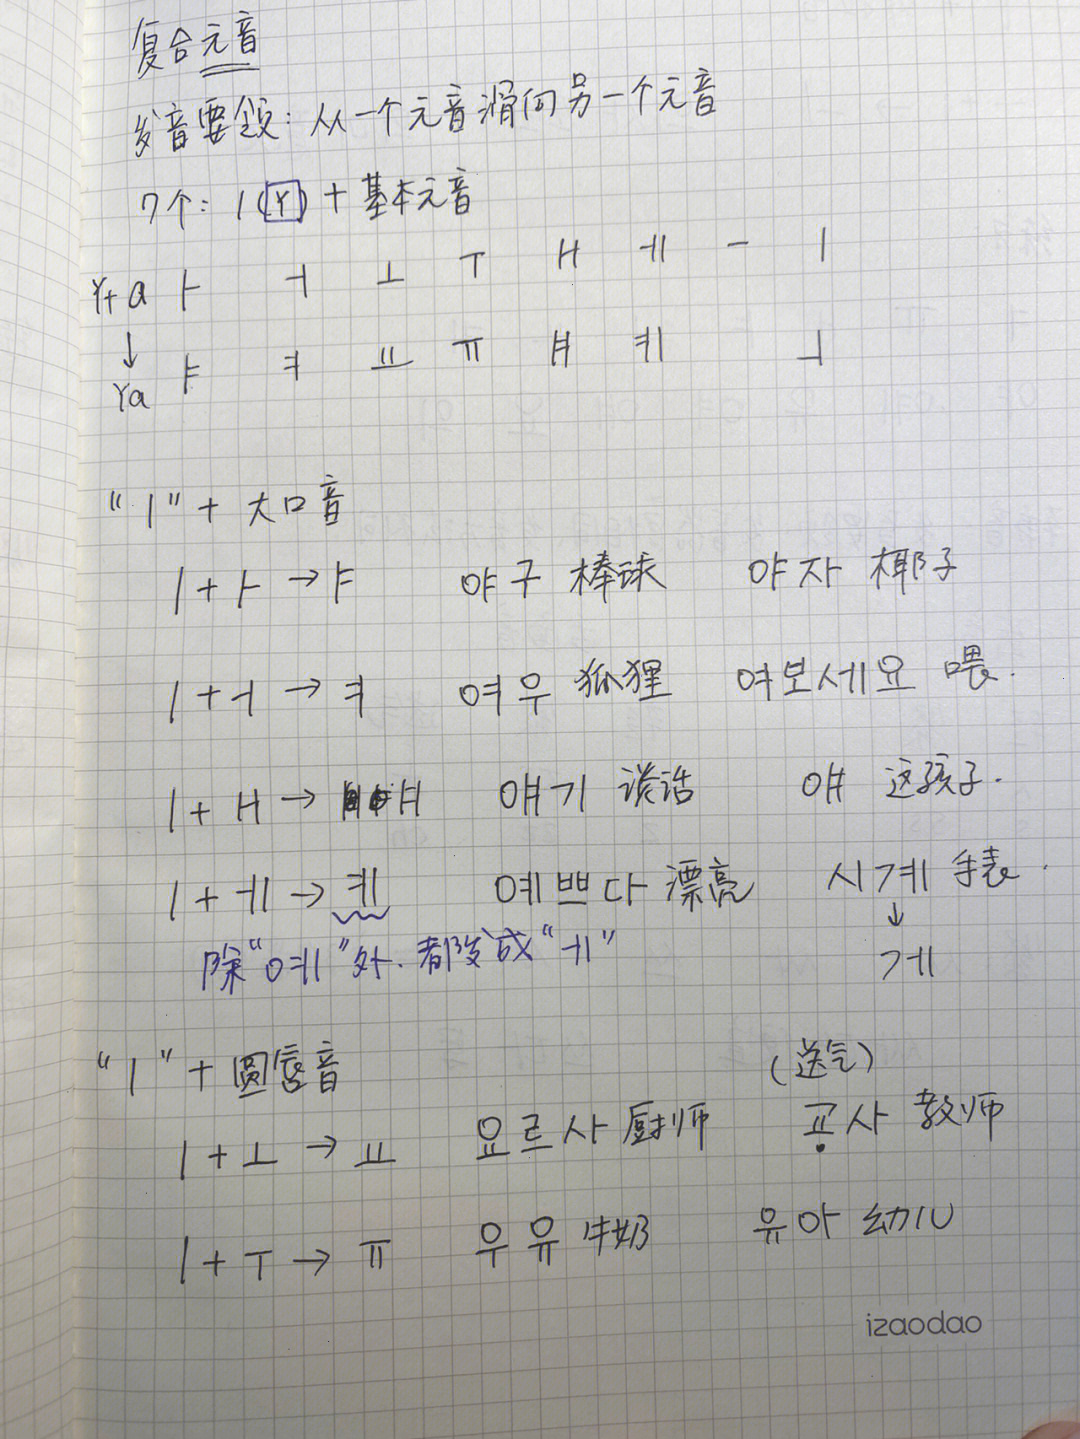 复合元音
发音要领：从一个元音滑向另一个元音
7个：ㅣ(Y)＋基本元音
Y+a ㅏ ㅓ ㅗ ㅜ ㅐ ㅔ ㅡ ㅣ
↓
Ya ㅑ ㅕ ㅛ ㅠ ㅒ ㅖ ㅢ
“ㅣ”+ 大口音
ㅣ+ㅏ→ㅑ 야구 棒球 야자 椰子
ㅣ+ㅓ→ㅕ 여우 狐狸 여보세요 喂.
ㅣ+ㅐ→ㅒ 얘기 谈话 얘 这孩子.
ㅣ+ㅔ→ㅖ 예쁘다 漂亮 시계 手表.
↓
除“예”外.都发成“ㅔ” 게
“ㅣ”+圆唇音 (送气)
ㅣ+ㅗ→ㅛ 요르사 厨师 교사 教师
ㅣ+ㅜ→ㅠ 우유 牛奶 유아 幼儿
izaodao